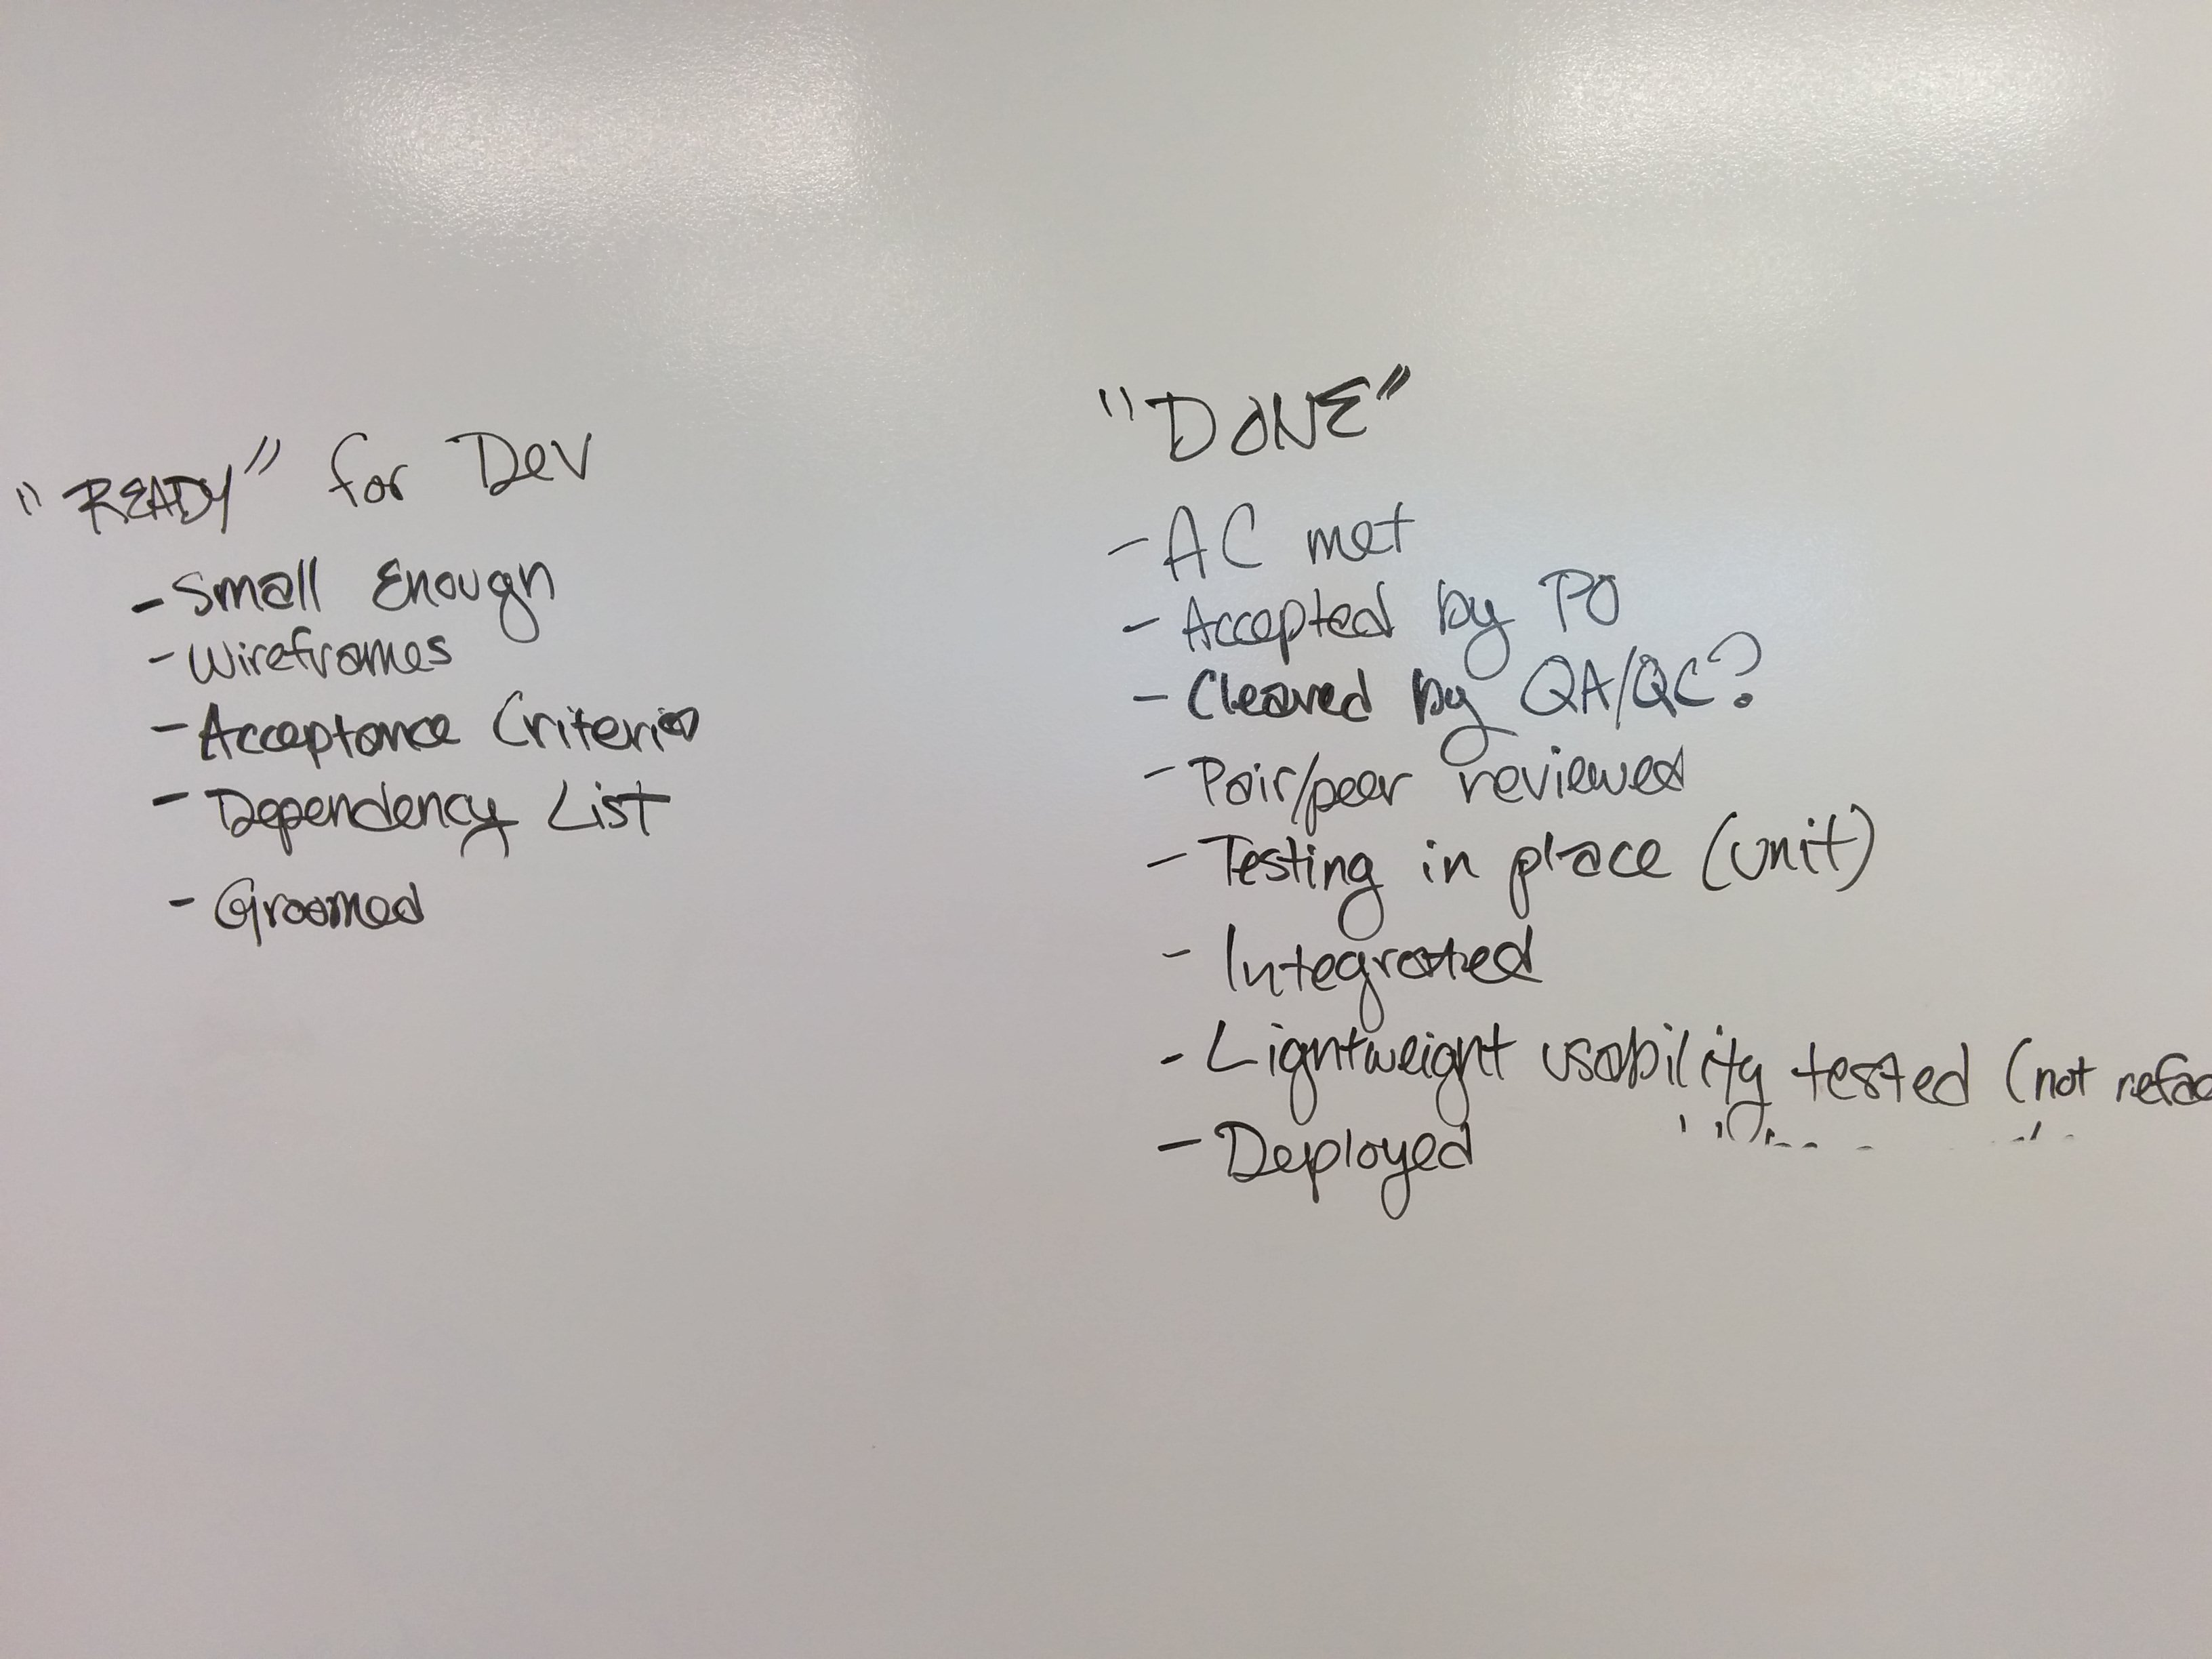 "READY" for Dev
- Small Enough
- Wireframes
- Acceptance Criteria
- Dependency List
- Groomed
"DONE"
- AC met
- Accepted by PO
- Cleared by QA/QC?
- Pair/peer reviewed
- Testing in place (unit)
- Integrated
- Lightweight usability tested (not
- Deployed